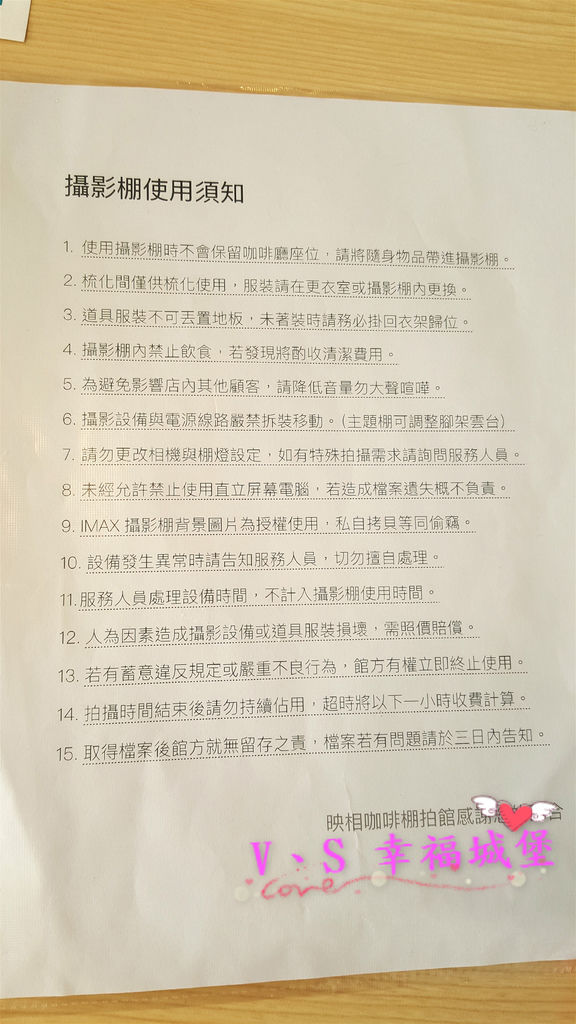 攝影棚使用須知
1. 使用攝影棚時不會保留咖啡廳座位，請將隨身物品帶進攝影棚。
2. 梳化間僅供梳化使用，服裝請在更衣室或攝影棚內更換。
3. 道具服裝不可丟置地板，未著裝時請務必掛回衣架歸位。
4. 攝影棚內禁止飲食，若發現將酌收清潔費用。
5. 為避免影響店內其他顧客，請降低音量勿大聲喧嘩。
6. 攝影設備與電源線路嚴禁拆裝移動。(主題棚可調整腳架雲台)
7. 請勿更改相機與棚燈設定，如有特殊拍攝需求請詢問服務人員。
8. 未經允許禁止使用直立屏幕電腦，若造成檔案遺失概不負責。
9. IMAX 攝影棚背景圖片為授權使用，私自拷貝等同偷竊。
10. 設備發生異常時請告知服務人員，切勿擅自處理。
11. 服務人員處理設備時間，不計入攝影棚使用時間。
12. 人為因素造成攝影設備或道具服裝損壞，需照價賠償。
13. 若有蓄意違反規定或嚴重不良行為，館方有權立即終止使用。
14. 拍攝時間結束後請勿持續佔用，超時將以下一小時收費計算。
15. 取得檔案後館方就無留存之責，檔案若有問題請於三日內告知。
映相咖啡棚拍館感謝
V、S 幸福城堡
Love